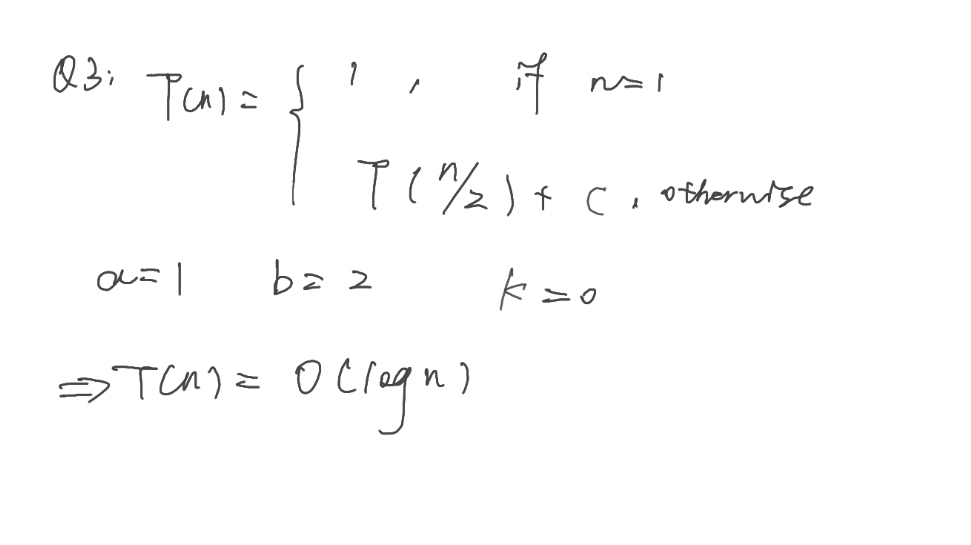 Q3: T(n) = { 1 , if n=1
T(n/2) + C , otherwise
a=1 b=2 k=0
⇒ T(n) = O(log n)